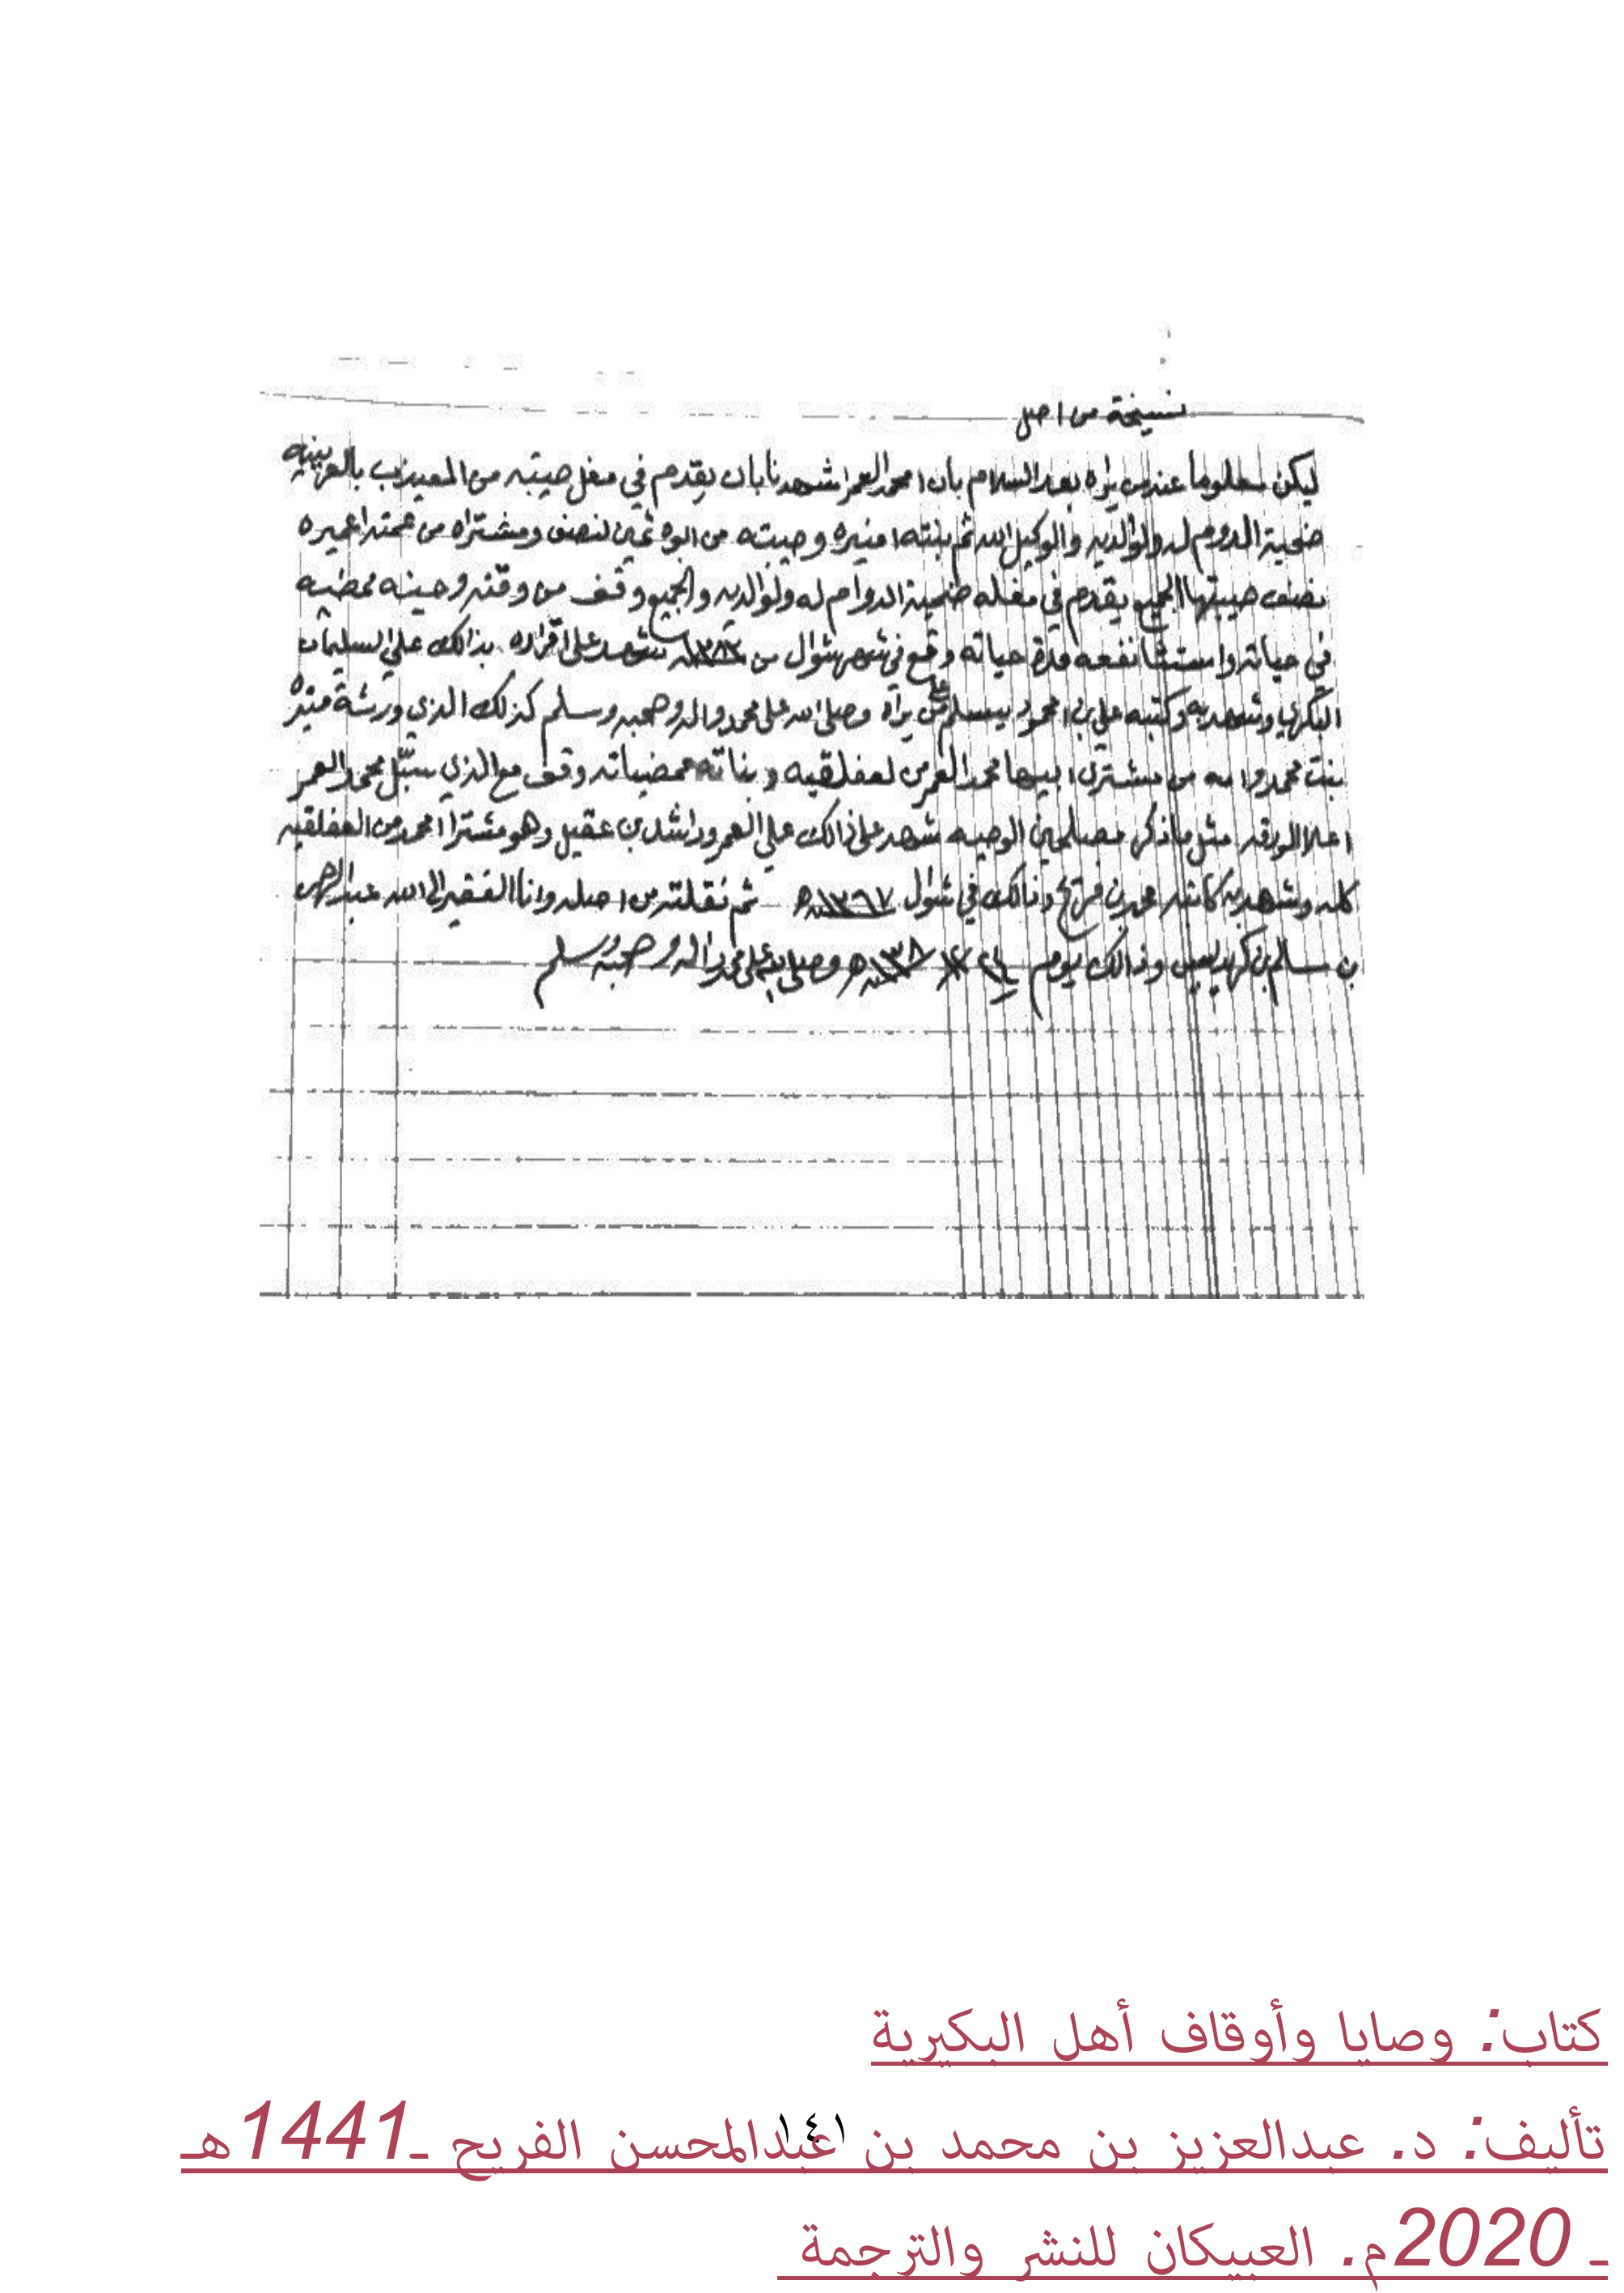 نسخة من اصل
ليكن معلوما عند من يراه بعد السلام بان محمد العمر اشهدنا بان يقدم في مغل صيبته من المعيذب
ضحية الدوم له ولوالديه والوكيل الله ثم بنته منيره وصيبته من ابوه ثمين لنصف ومشتراه من عمته اعميره
نصف صيبتها الجميع يقدم في مغله ضحية الدوام له ولوالديه والجميع وقف من وقته وحينه ممضيه
في حياته واستثنا نفعه مدة حياته وقع في شهر شوال من ١٣٨٢ شهد على اقراره بذالك علي السليمان
البكري وشهد به وكتبه علي بن محمود يسلم على من يراه وصلى الله على محمد واله وصحبه وسلم كذلك الذي ورثة منيره
بنت محمد وامه من مشترى ابيها محمد العمر من لعفلقيه وبناته ممضياته وقف مع الذي سبّل محمد العمر
اعلا الورقه مثل ما ذكر مصلحين الوصيه شهد على ذالك علي العمر وراشد بن عقيل وهو مشترا محمد من العفلقيه
كله وشهد به كاتبه محمد بن فريح وذالك في شوال ١٣٦٧ه ثم نقلته من اصله وانا الفقير الى الله عبدالرحمن
بن سالم بن وذالك يوم وصلى الله على محمد واله وصحبه وسلم
كتاب: وصايا وأوقاف أهل البكيرية
تأليف: د. عبدالعزيز بن محمد بن عبدالمحسن الفريح ـ1441هـ
ـ 2020م. العبيكان للنشر والترجمة
١٤١